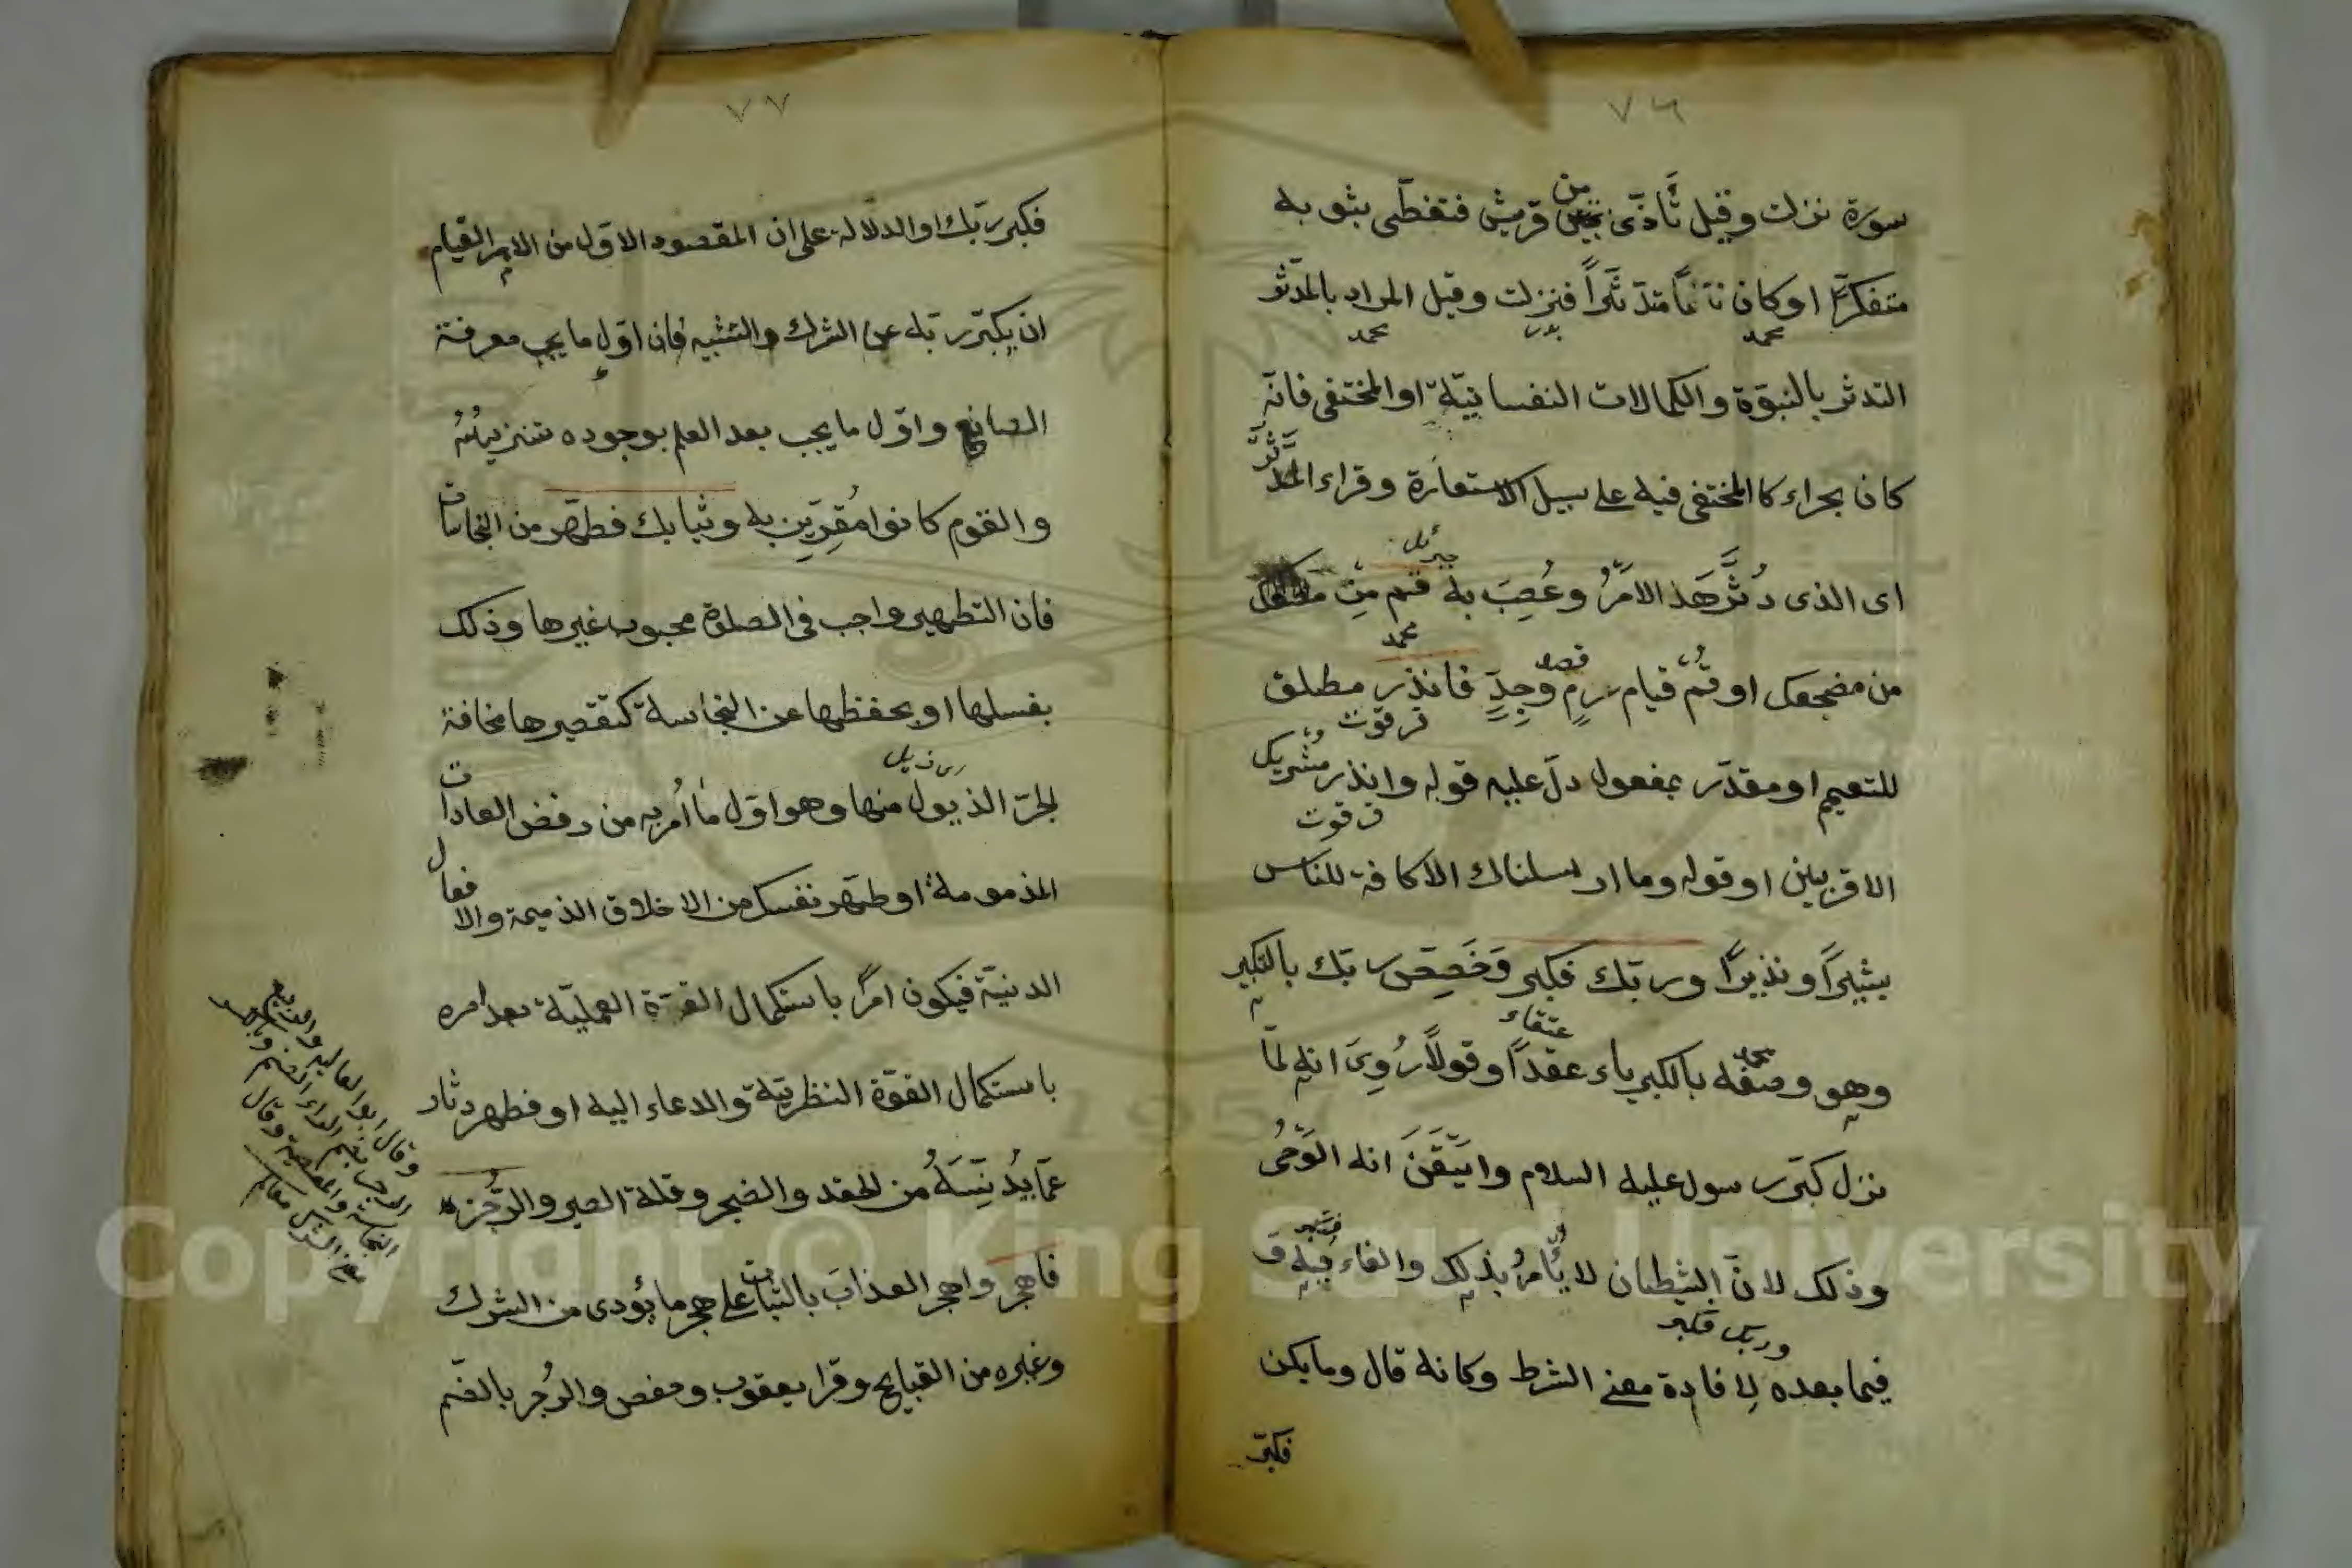 ٧٦
سورة نزلت وقيل تَأَذّى من قريش فتغطّى بثوبه
متفكرًا او كان نائمًا متدثّرًا فنزلت وقيل المراد بالمدّثر
محمد
محمد
التدثر بالنبوّة والكمالات النفسانيّة او المختفى فانّه
كان بحراء كالمختفى فيه على سبيل الاستعارة وقراء المدَثَّر
اى الذى دُثّرَ هَذ الامرُ وعُصِبَ به قم مِن
جبرئل
محمد
من مضجعك او قُم قيام عزمٍ وجِدٍّ فانذر مطلق
قصد
للتعميم او مقدّر بمفعول دلّ عليه قوله وانذر عشيرتك
الاقربين او قوله وما ارسلناك الا كافة للناس
بشيرًا ونذيرًا وربّك فكبر وَخَصِّص ربّك بالتكبير
وهو وصفه بالكبرياء عقدًا وقولًا رُوِىَ انه لمّا
نزل كبّر رسول عليه السلام وايَقَنَ انه الوَحْىُ
وذلك لانّ الشيطان لا يَأمرُ بذلك والفاء فيه و
فيما بعده لِافادة معنى الشرط وكانه قال وما يكن
وربك فكبر
فكبّر
٧٧
فكبر ربّك او الدلالة على ان المقصود الاوّل من الامر القيام
ان يكبّر ربّه عن الشرك والتشبيه فان اوّل ما يجب معرفة
الصانع واوّل ما يجب بعد العلم بوجوده تنزيهُهُ
والقوم كانوا مُقِرّين به وثيابك فطهّر من النجاسات
فان التطهير واجب فى الصلوة محبوب غيرها وذلك
بغسلها او بحفظها عن النجاسة كتقصيرها مخافة
لجرّ الذيول منها وهو اوّل ما أُمر به من رفض العادات
المذمومة او طهّر نفسك من الاخلاق الذميمة والافعال
الدنيّة فيكون امرًا باستكمال القوّة العمليّة بعد امره
باستكمال القوّة النظريّة والدعاء اليه او فطهر دثار
عمّا يُدنِّسَهُ من الحقد والضجر وقلة الصبر والرُّجز
فاهجر واهجر العذابَ بالثبات على هجر ما يؤدى من الشرك
وغيره من القبايح وقرا يعقوب وحفص والرُجز بالضم
وقال ابو العاليه والربيع
الرجز بضم الراء الصنم وبالكسر
النجاسة والمعصية وقال
Copyright © King Saud University
1957